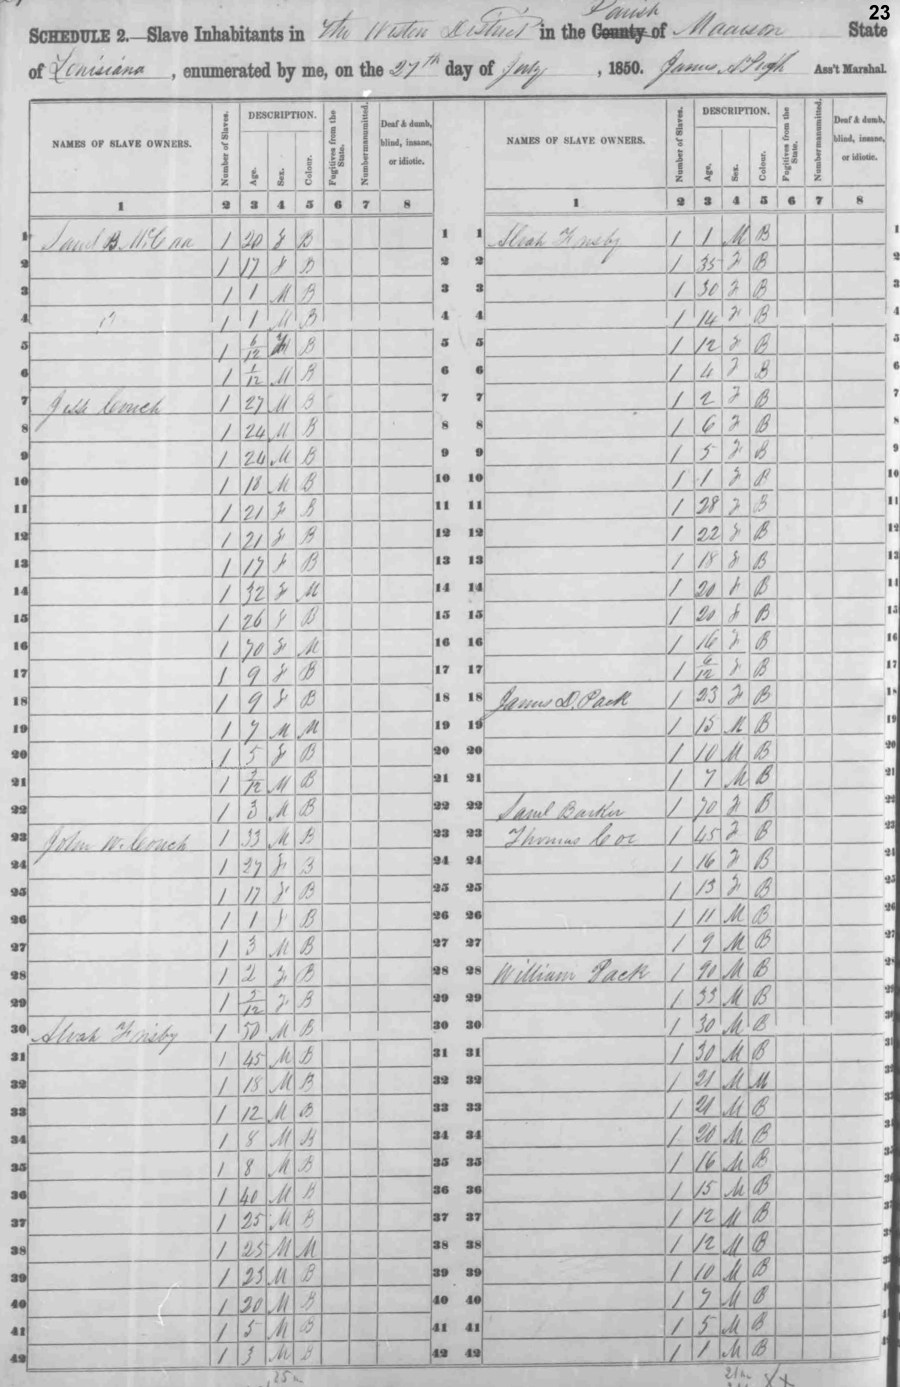 23
SCHEDULE 2.—Slave Inhabitants in the Western District in the County Parish of Madison State
of Louisiana, enumerated by me, on the 27th day of July, 1850. James Ass't Marshal.
NAMES OF SLAVE OWNERS. Number of Slaves. DESCRIPTION. Age. Sex. Colour. Fugitives from the State. Number manumitted. Deaf & dumb, blind, insane, or idiotic. NAMES OF SLAVE OWNERS. Number of Slaves. DESCRIPTION. Age. Sex. Colour. Fugitives from the State. Number manumitted. Deaf & dumb, blind, insane, or idiotic.
1 2 3 4 5 6 7 8 1 2 3 4 5 6 7 8
1 Saml B. 1 20 F B 1 1 Alvah 1 1 M B 1
2 1 17 F B 2 2 1 35 F B 2
3 1 1 M B 3 3 1 30 F B 3
4 1 1 M B 4 4 1 14 F B 4
5 1 6/12 B 5 5 1 12 F B 5
6 1 1/12 M B 6 6 1 4 F B 6
7 Jesse Couch 1 27 M B 7 7 1 2 F B 7
8 1 24 M B 8 8 1 6 F B 8
9 1 24 M B 9 9 1 5 F B 9
10 1 18 M B 10 10 1 1 F B 10
11 1 21 F B 11 11 1 28 F B 11
12 1 21 F B 12 12 1 22 F B 12
13 1 17 F B 13 13 1 18 F B 13
14 1 32 F M 14 14 1 20 F B 14
15 1 26 F B 15 15 1 20 F B 15
16 1 70 F M 16 16 1 16 F B 16
17 1 9 F B 17 17 1 6/12 F B 17
18 1 9 F B 18 18 James D. Pack 1 23 F B 18
19 1 7 M M 19 19 1 15 M B 19
20 1 5 F B 20 20 1 10 M B 20
21 1 /12 M B 21 21 1 7 M B 21
22 1 3 M B 22 22 Saml Barker 1 70 F B 22
23 John W. Couch 1 33 M B 23 23 Thomas Coe 1 45 F B 23
24 1 27 F B 24 24 1 16 F B 24
25 1 17 F B 25 25 1 13 F B 25
26 1 1 F B 26 26 1 11 M B 26
27 1 3 M B 27 27 1 9 M B 27
28 1 2 F B 28 28 William Pack 1 90 M B 28
29 1 /12 F B 29 29 1 33 M B 29
30 Alvah 1 50 M B 30 30 1 30 M B 30
31 1 45 M B 31 31 1 30 M B 31
32 1 18 M B 32 32 1 21 M M 32
33 1 12 M B 33 33 1 21 M B 33
34 1 8 M B 34 34 1 20 M B 34
35 1 8 M B 35 35 1 16 M B 35
36 1 40 M B 36 36 1 15 M B 36
37 1 25 M B 37 37 1 12 M B 37
38 1 25 M M 38 38 1 12 M B 38
39 1 23 M B 39 39 1 10 M B 39
40 1 20 M B 40 40 1 7 M B 40
41 1 5 M B 41 41 1 5 M B 41
42 1 3 M B 42 42 1 1 M B 42